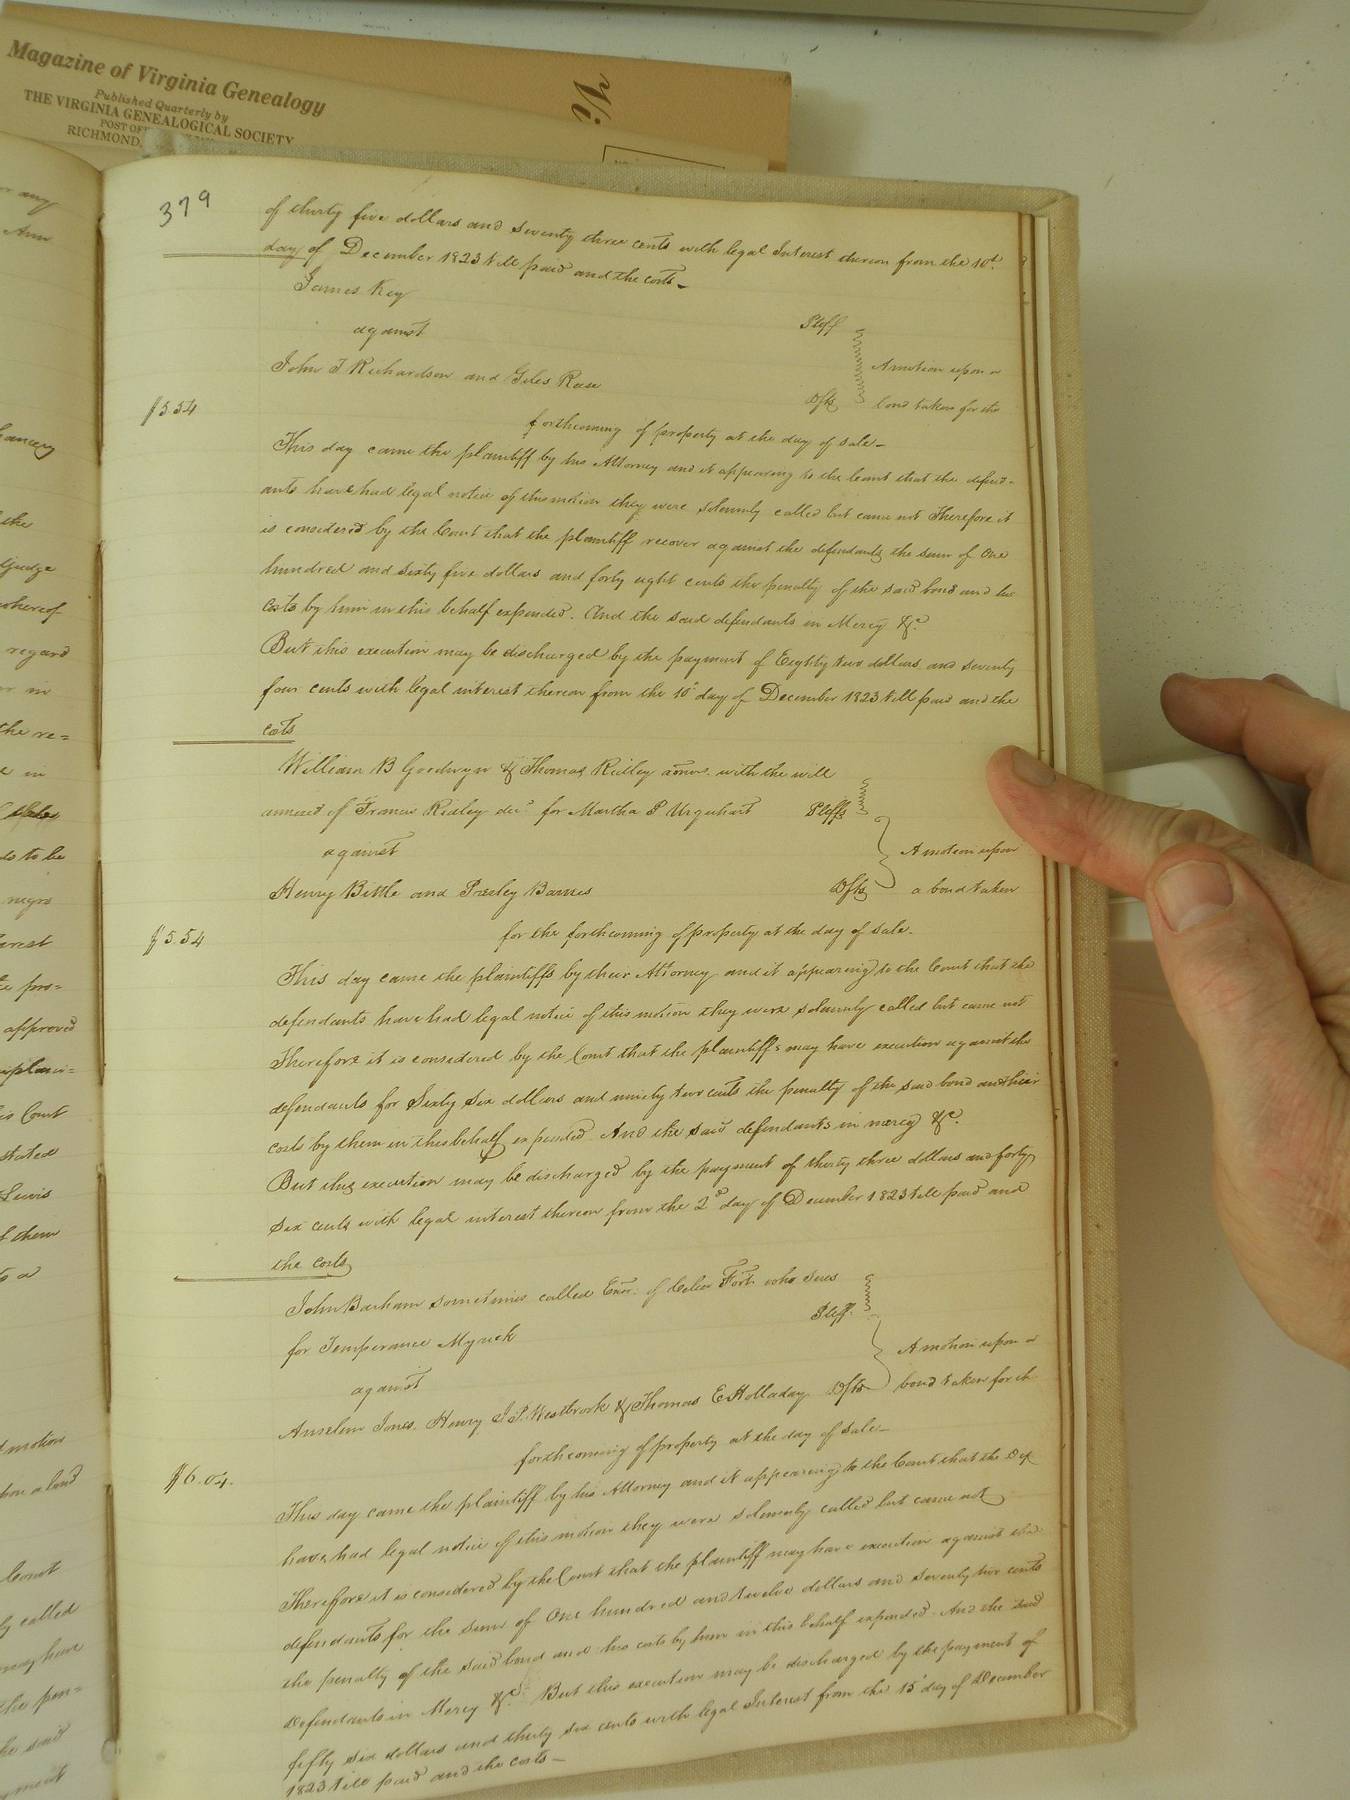 Magazine of Virginia Genealogy
Published Quarterly by
THE VIRGINIA GENEALOGICAL SOCIETY
POST OF
RICHMOND,
379
of thirty five dollars and seventy three cents with legal Interest thereon from the 10th
day of December 1823 till paid and the costs-
James Key
Pltff
against
A motion upon a
John T Richardson and Giles Rose
Dfts
bond taken for the
$5.54
forthcoming of property at the day of sale-
This day came the plaintiff by his Attorney and it appearing to the Court that the defend-
ants have had legal notice of this motion they were solemnly called but came not Therefore it
is considered by the Court that the plaintiff recover against the defendants the sum of One
hundred and sixty five dollars and forty eight cents the penalty of the said bond and his
Costs by him in this behalf expended. And the said defendants in Mercy &c.
But this execution may be discharged by the payment of Eighty two dollars and seventy
four cents with legal interest thereon from the 10th day of December 1823 till paid and the
costs
William B Goodwyn & Thomas Ridley admr. with the will
annexed of Francis Ridley decd for Martha P Urquhart Pltffs
against
A motion upon
Henry Bittle and Presley Barnes Dfts
a bond taken
$5.54
for the forthcoming of property at the day of sale.
This day came the plaintiffs by their Attorney and it appearing to the Court that the
defendants have had legal notice of this motion they were solemnly called but came not
Therefore it is considered by the Court that the plaintiffs may have execution against the
defendants for Sixty Six dollars and ninety two cents the penalty of the said bond and their
costs by them in this behalf expended. And the said defendants in mercy &c.
But this execution may be discharged by the payment of thirty three dollars and forty
six cents with legal interest thereon from the 2d day of December 1823 till paid and
the costs
John Barham sometimes called Exor. of Fort who sues
for Temperance Myrick Pltff.
against
A motion upon a
Anselm Jones, Henry J. P. Westbrook & Thomas E Holladay Dfts
bond taken for th
forthcoming of property at the day of sale-
$6.04.
This day came the plaintiff by his Attorney and it appearing to the Court that the Def
have had legal notice of this motion they were solemnly called but came not
Therefore it is considered by the Court that the plaintiff may have execution against the
defendants for the sum of One hundred and twelve dollars and seventy two cents
the penalty of the said bond and his costs by him in this behalf expended. And the said
Defendants in Mercy &c. But this execution may be discharged by the payment of
fifty six dollars and thirty six cents with legal Interest from the 15th day of December
1823 till paid and the costs-